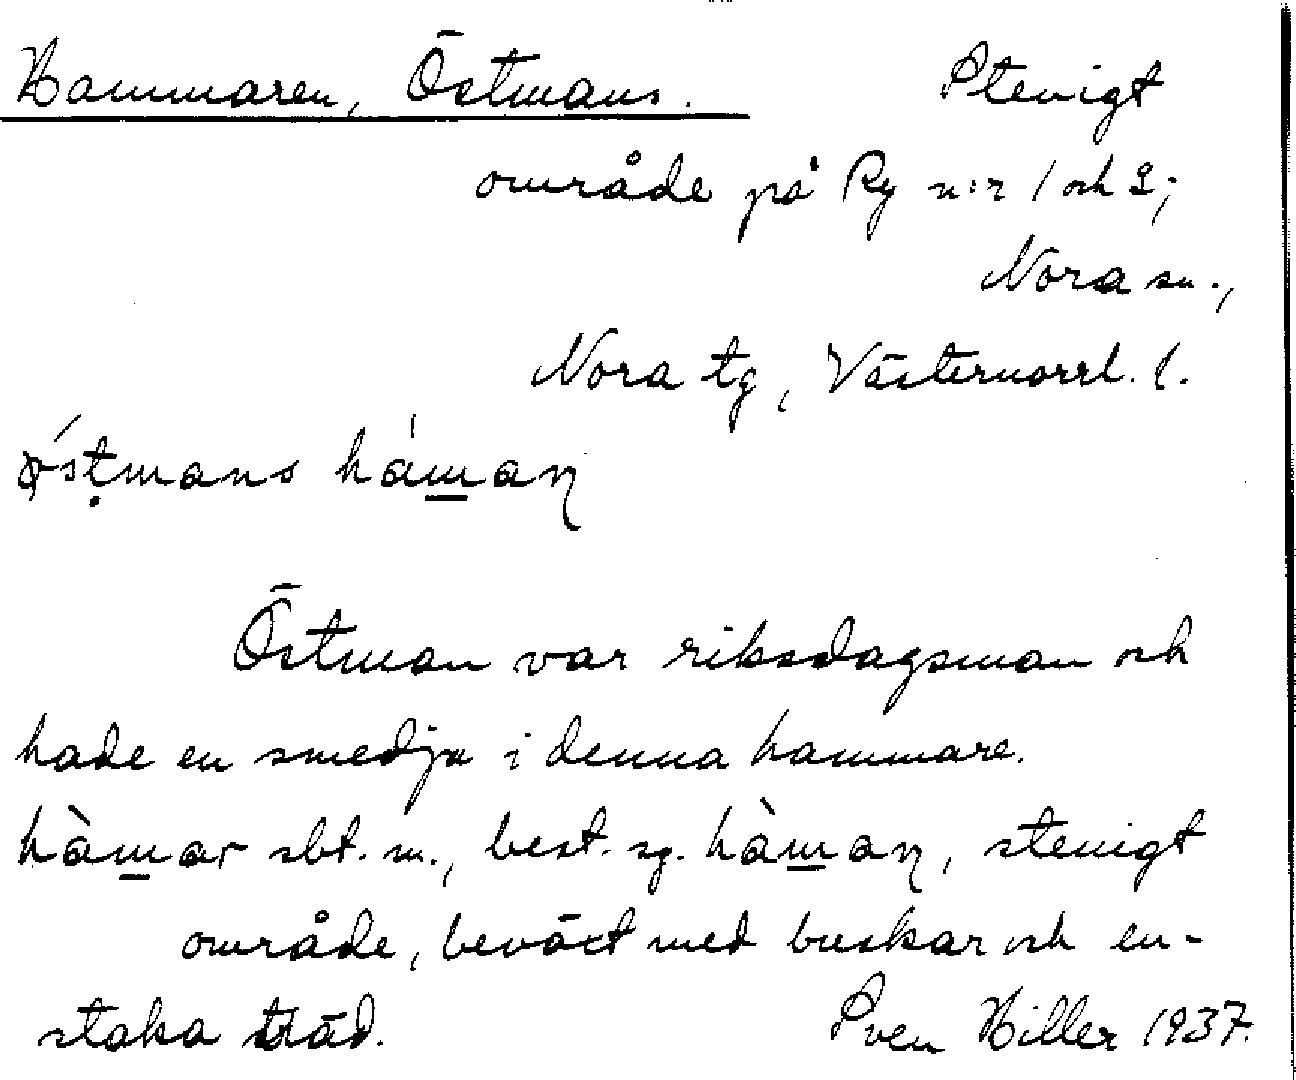 Hammaren, Östmans. Stenigt
område på Ry n:r 1 och 2;
Nora sn.,
Nora tg, Västernorrl. l.
ǿsṭmans hámaꞃ
Östman var riksdagsman och
hade en smedja i denna hammare.
hàm̲ar sbt. m., best. sg. hàm̲aƞ, stenigt
område, beväxt med buskar och en-
staka träd. Sven Hiller 1937.